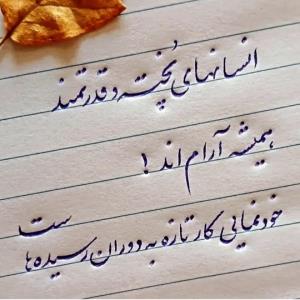 انسانهای پُخته و قدرتمند
همیشه آرام اند !
خودنمایی کار تازه به دوران رسیده ها ست